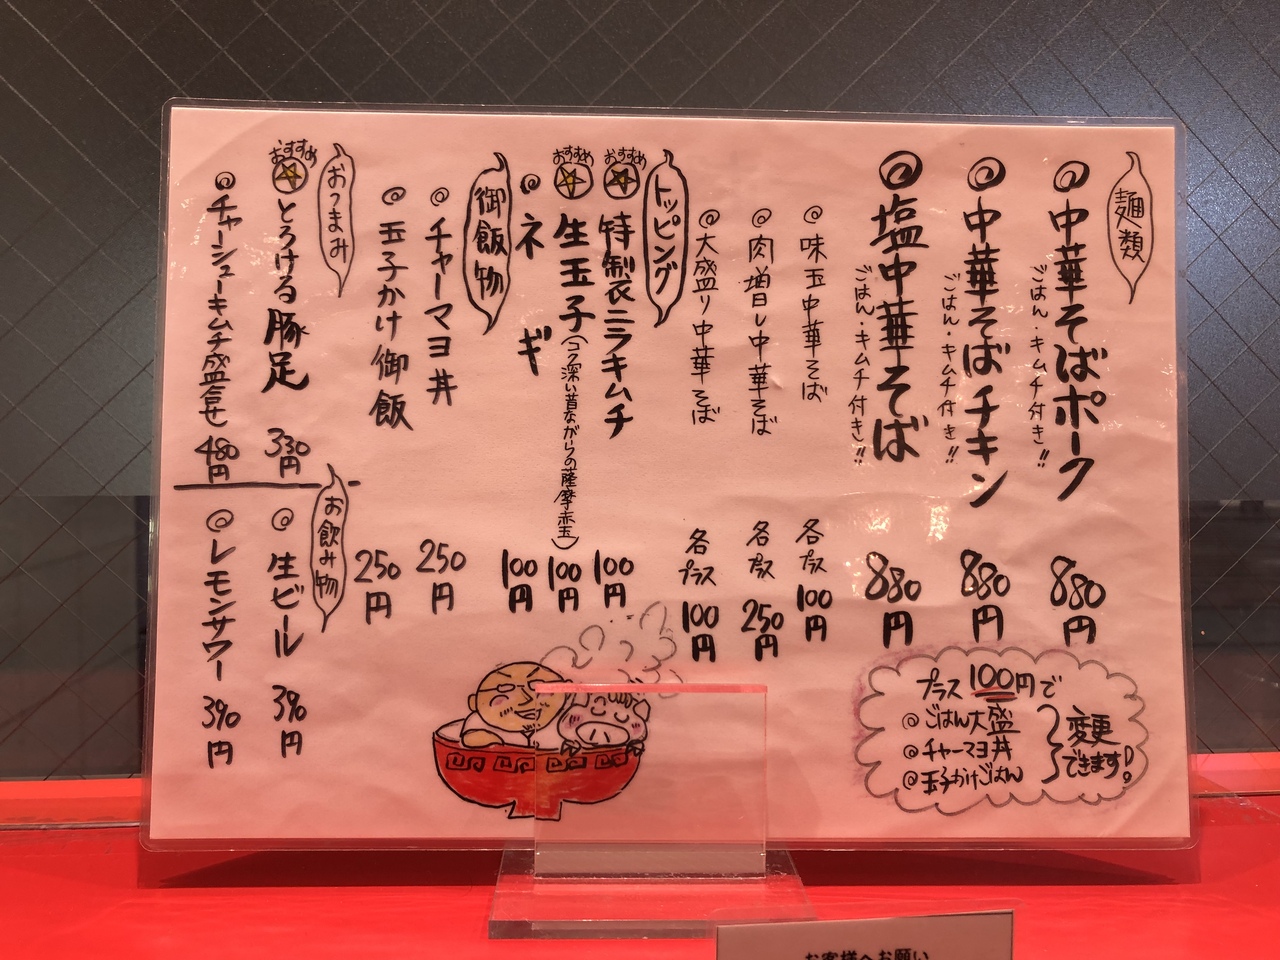 麺類
◎中華そばポーク 880円
ごはん・キムチ付き!!
◎中華そばチキン 880円
ごはん・キムチ付き!!
◎塩中華そば 880円
ごはん・キムチ付き!!
◎味玉中華そば 各プラス100円
◎肉増し中華そば 各プラス250円
◎大盛り中華そば 各プラス100円
トッピング
おすすめ 特製ニラキムチ 100円
おすすめ 生玉子(コク深い昔ながらの薩摩赤玉) 100円
◎ネギ 100円
御飯物
◎チャーマヨ丼 250円
◎玉子かけ御飯 250円
おつまみ
おすすめ とろける豚足 330円
◎チャーシューキムチ盛合せ 480円
お飲み物
◎生ビール 390円
◎レモンサワー 390円
プラス100円で
◎ごはん大盛
◎チャーマヨ丼
◎玉子かけごはん
変更
できます!
お客様へお願い